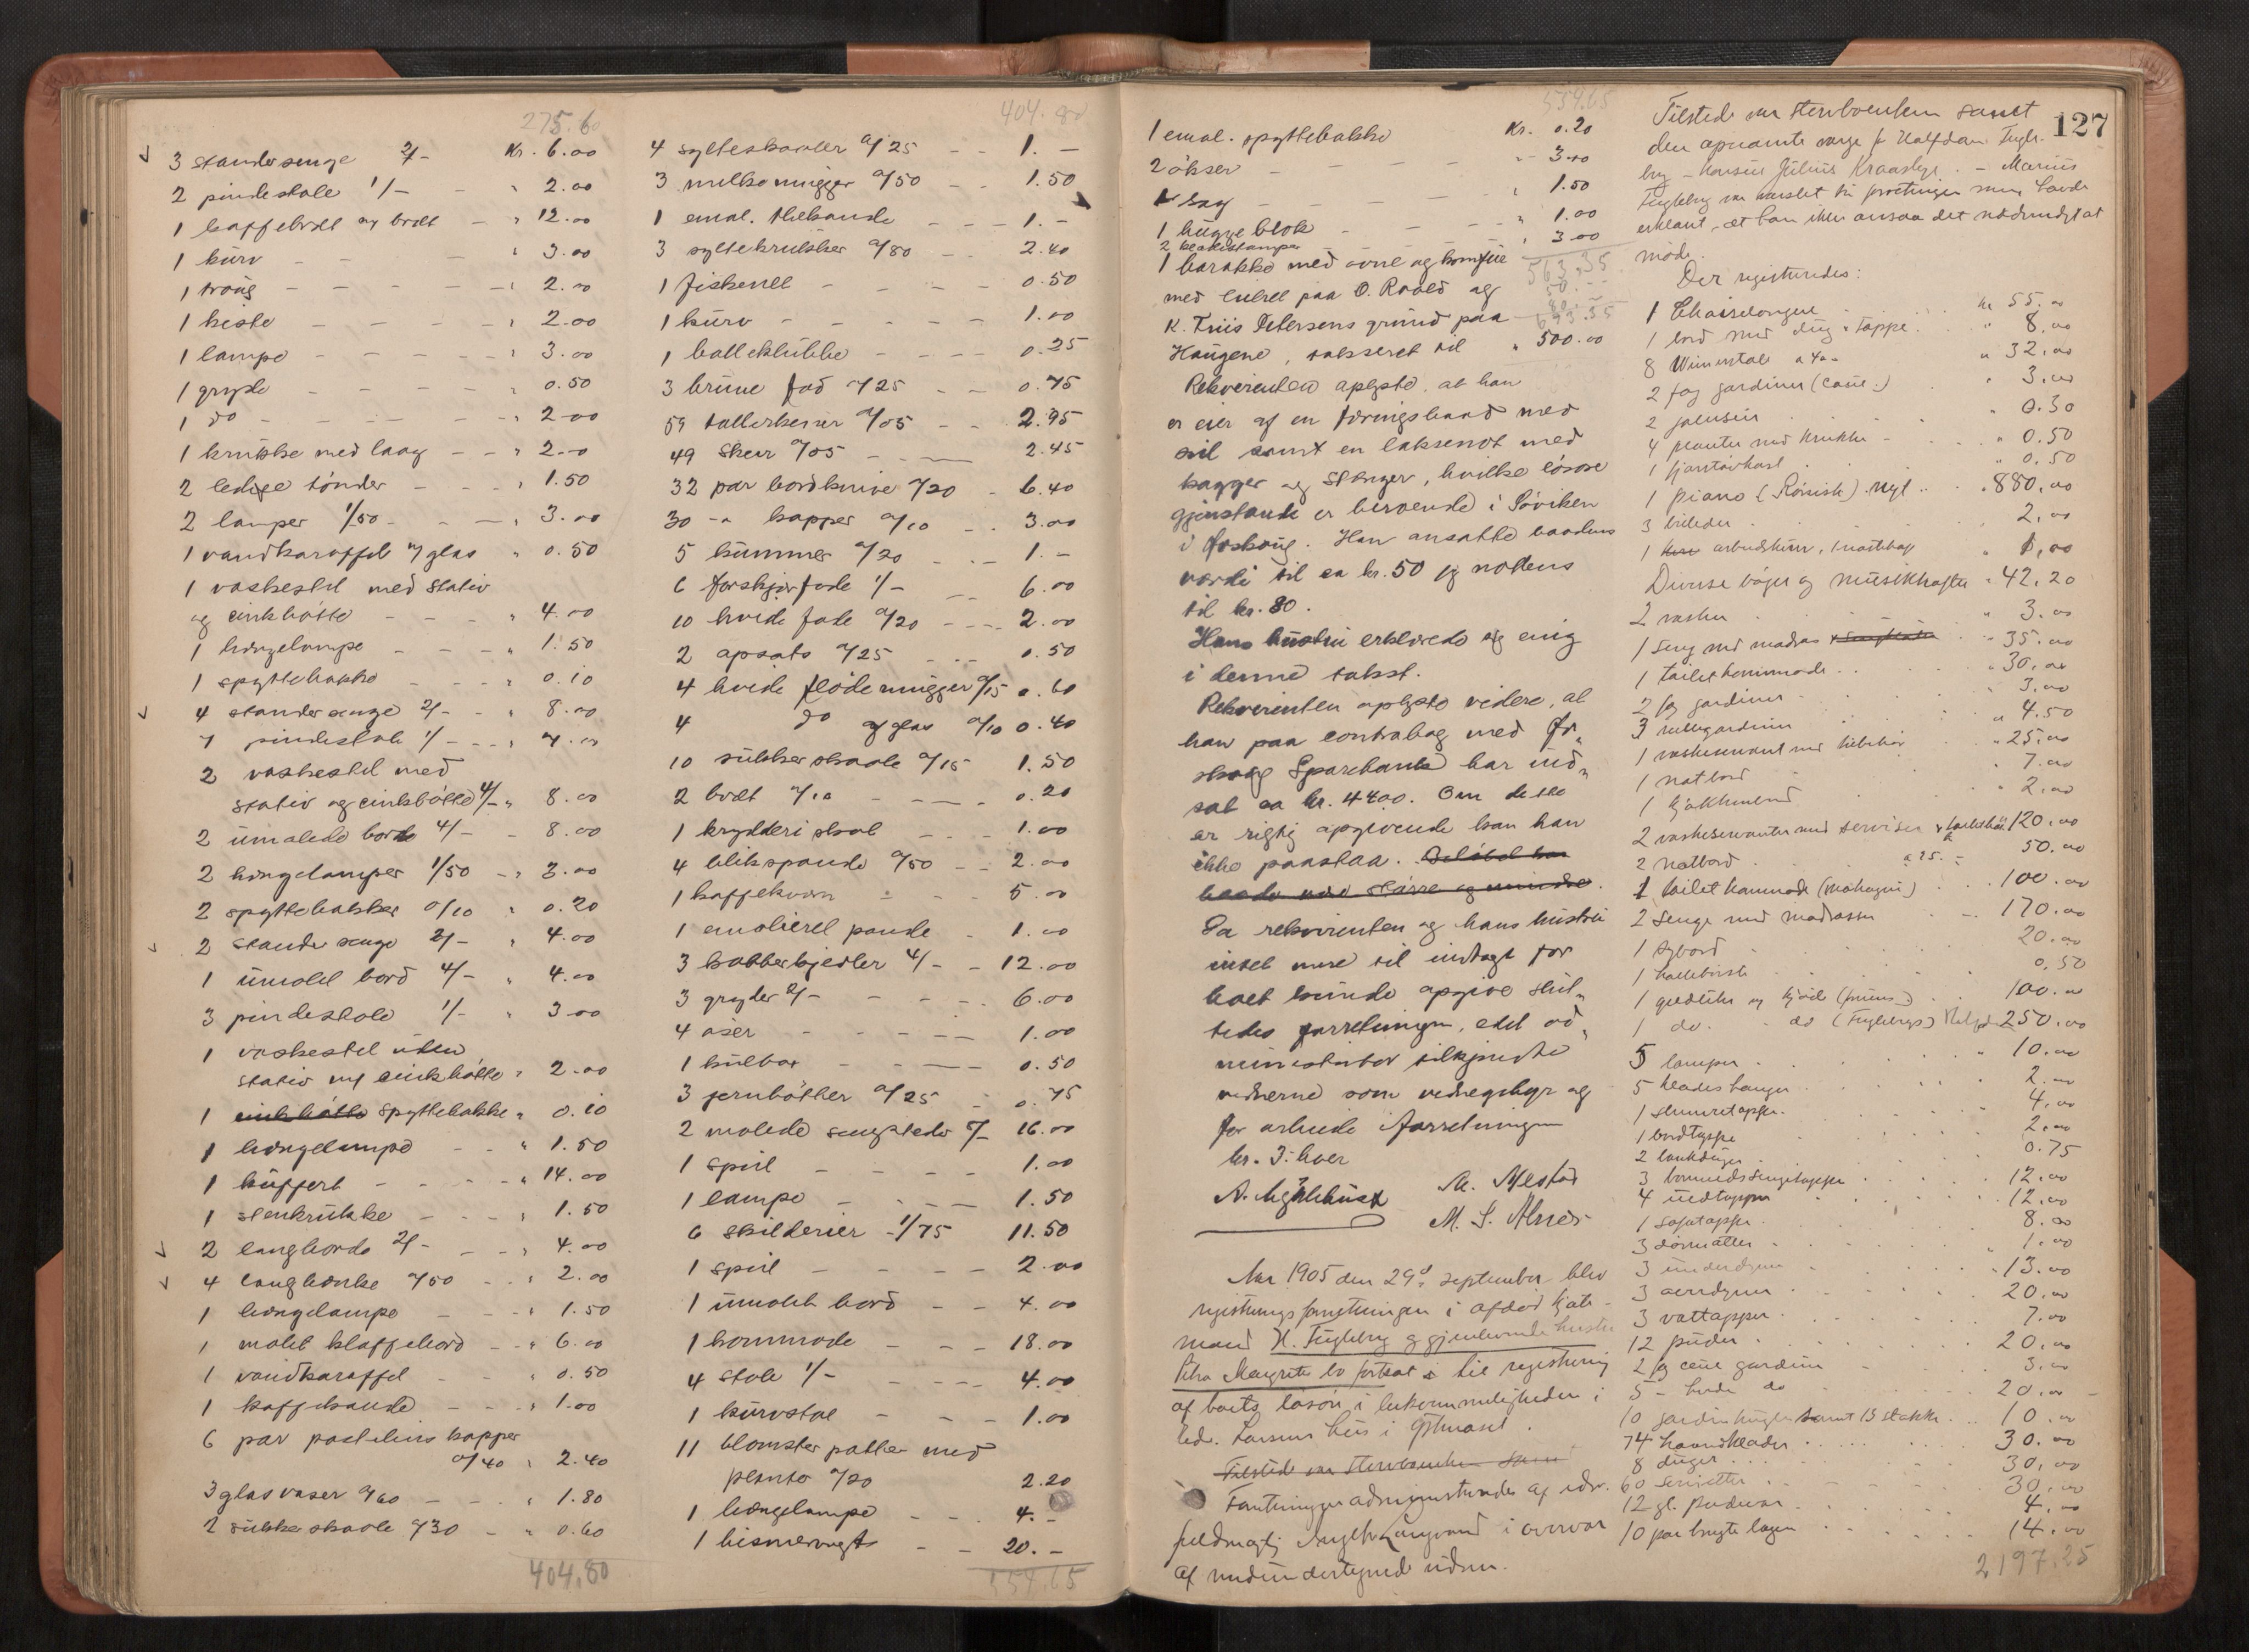 275.60
3 standersenge 2/- Kr. 6.00
2 pindestole 1/- - " 2.00
1 kaffebræt og bræt - " 12.00
1 kurv - - - " 3.00
1 traug - - - - - " 2.00
1 kiste - - - - " 2.00
1 lampe - - - - " 3.00
1 gryde - - " 0.50
1 do - - - - " 2.00
1 krukke med laag - - " 2.00
2 ledige tønder - - - " 1.50
2 lamper 1/50 - - - " 3.00
1 vandkaraffel m/ glas " 0.50
1 vaskestel med stativ
og zinkbøtte - - - " 4.00
1 hængelampe - - - " 1.50
1 spyttebakke - - - " 0.10
4 standersenge 2/- - " 8.00
7 pindestole 1/- - - " 7.00
2 vaskestel med
stativ og zinkbøtte 4/- " 8.00
2 umalede borde 4/- - 8.00
2 hængelamper 1/50 - " 3.00
2 spyttebakker 0/10 " 0.20
2 standersenge 2/- " 4.00
1 umalet bord 4/- " 4.00
3 pindestole 1/- " 3.00
1 vaskestel uden
stativ m/ zinkbøtte " 2.00
1 zinkbøtte spyttebakke " 0.10
1 hængelampe - - " 1.50
1 kuffert - - - - " 14.00
1 stenkrukke - - - " 1.50
2 langborde 2/- - - " 4.00
4 langbænke 0/50 - - " 2.00
1 hængelampe - - - " 1.50
1 malet klaffebord - - " 6.00
1 vandkaraffel - - " 0.50
1 kaffekande - - - " 1.00
6 par postelins kopper
0/40 " 2.40
3 glasvaser 0/60 - - - " 1.80
2 sukkerskaale 0/30 - " 0.60
404.80
404.80
4 sylteskaaler 0/25 - - 1. -
3 melkemugger 0/50 - - 1.50
1 emal. thekande - - - 1. -
3 syltekrukker 0/80 - - 2.40
1 fiskenet - - - - 0.50
1 kurv - - - - - 1.00
1 balleklubbe - - - - 0.25
3 brune fad 0/25 - - 0.75
59 tallerkener 0/05 - - 2.95
49 skeer 0/05 - - 2.45
32 par bordknive 0/20 - 6.40
30 -"- kopper 0/10 - - 3.00
5 kummer 0/20 - - - 1. -
6 forskjærfade 1/- - - 6.00
10 hvide fade 0/20 - - - 2.00
2 opsats 0/25 - - - 0.50
4 hvide flødemugger 0/15 0.60
4 do af glas 0/10 0.40
10 sukkerskaale 0/15 1.50
2 bræt 0/10 - - - - 0.20
1 krydderiskab - - - 1.00
4 blikspande 0/50 - - 2.00
1 kaffekværn - - - 5.00
1 emalieret pande - 1.00
3 kobberkjedler 4/- - 12.00
3 gryder 2/- - - - - 6.00
4 øser - - - - - 1.00
1 kulbox - - - - 0.50
3 jernbøtter 0/25 - 0.75
2 malede sengesteder 8/- 16.00
1 speil - - - - 1.00
1 lampe - - - - 1.50
6 skilderier 1/75 11.50
1 speil - - - - 2.00
1 umalet bord - - 4.00
1 kommode - - - 18.00
4 stole 1/- - - - - 4.00
1 kurvstol - - - 1.00
11 blomsterpotter med
planter 0/20 2.20
1 hængelampe - - - 4. -
1 bismervægt - - 20. -
559.65
559.65
1 emal. spyttebakke Kr. 0.20
2 økser - - - - - " 3.00
1 sag - - - - " 1.50
1 huggeblok - - - " 1.00
2 - - " 3.00
1 barakke med ovne og komfur 563.35
med leiret paa O. Roald og 50. -
K. Friis Petersens grund paa 80. - 693.35
Haugene, takseret til " 500.00
Rekvirenten oplyste, at han
er eier af en føringsbaad med
seil samt en laksenot med
kagger og stænger, hvilke løsøre
gjenstande er beroende i Søviken
i Ørskoug. Han ansatte baadens
værdi til ca kr. 50 og notens
til kr. 80.
Hans hustru erklærede sig enig
i denne takst.
Rekvirenten oplyste videre, at
han paa contrabog med Ør-
skoug Sparebank har ind-
sat ca kr. 4400. Om dette
er rigtig opgivende kan han
ikke paastaa. Beløbet kan
baade være større og mindre.
Da rekvirenten og hans hustru
intet mere til indtægt for
boet kunde opgive slut-
tedes forretningen, idet ad-
ministrator tilkjendte
vidnerne som vidnegebyr og
for arbeide i forretningen
kr. 3. hver
M. S. Alnes
Aar 1905 den 29d september blev
registreringsforretningen i afdød kjøb-
mand H. Fugleberg og gjenlevende hustru
Petra Margrete bo fortsat til registrering
af boets løsøre i bekvemmeligheden i
hus i
Tilstede var sterboenken samt
Forretningen administreredes af edsv.
fuldmægtig i overvær
af medundertegnede vidner.
127
Tilstede var sterboenken samt
den opnævnte værge for Halfdan Fugle-
berg - Hansen Julius - Marius
Fugleberg var varslet til forretningen men havde
erklært, at han ikke ansaa det nødvendigt at
møde.
Der registreredes:
1 Chaiselongue kr 55.00
1 bord med dug & tæppe " 8.00
8 Wienerstole a 4.00 " 32.00
2 fag gardiner (couл.) " 3.00
2 jalusier " 0.30
4 planter med krukker - " 0.50
1 " 0.50
1 piano (Rönisch) nyt " 880.00
3 billeder 2.00
1 arbeidskurv, 1 " 1.00
Diverse bøger og musikhefter " 42.20
2 vaser " 3.00
1 seng med madras " 35.00
1 toiletkommode " 30.00
2 fag gardiner " 3.00
3 rullegardiner " 4.50
1 vaskeservant med tilbehør " 25.00
1 natbord " 7.00
1 kjøkkenbord " 2.00
2 vaskeservanter med serviser 120.00
2 natbord a 25. - 50.00
1 toiletkommode (mahogni) 100.00
2 senge med madrasser - 170.00
1 sybord 20.00
1 0.50
1 gulduhr og kjæde (fruens) 100.00
1 do. - do (Fuglebergs) 250.00
5 lamper " 10.00
5 2.00
1 slumretæppe 4.00
1 bordtæppe 2.00
2 0.75
3 bomuldssengetæpper 12.00
4 uldtæpper 12.00
1 sofatæppe 8.00
3 dørmatter " 1.00
3 underdyner " 13.00
3 overdyner 20.00
3 vattæpper 7.00
12 puder 20.00
2 fg gardiner 3.00
5 - hvide do 20.00
10 samt 13 10.00
74 haandklæder 30.00
8 duger 30.00
60 servietter 30.00
12 gl. pudevar 4.00
10 par brugte lagen 14.00
2,197.25